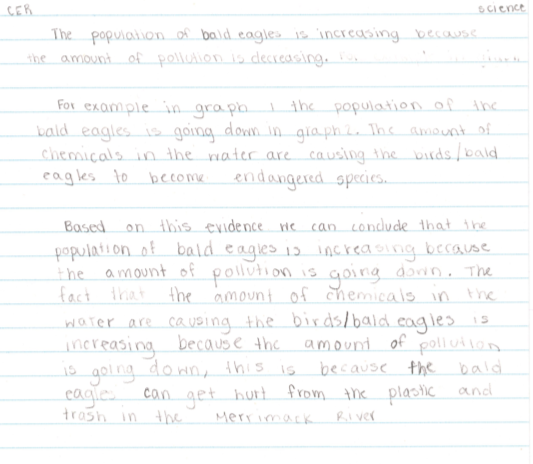 CER science
The population of bald eagles is increasing because
the amount of pollution is decreasing.
For example in graph 1 the population of the
bald eagles is going down in graph 2. The amount of
chemicals in the water are causing the birds/bald
eagles to become endangered species.
Based on this evidence we can conclude that the
population of bald eagles is increasing because
the amount of pollution is going down. The
fact that the amount of chemicals in the
water are causing the birds/bald eagles is
increasing because the amount of pollution
is going down, this is because the bald
eagles can get hurt from the plastic and
trash in the Merrimack River